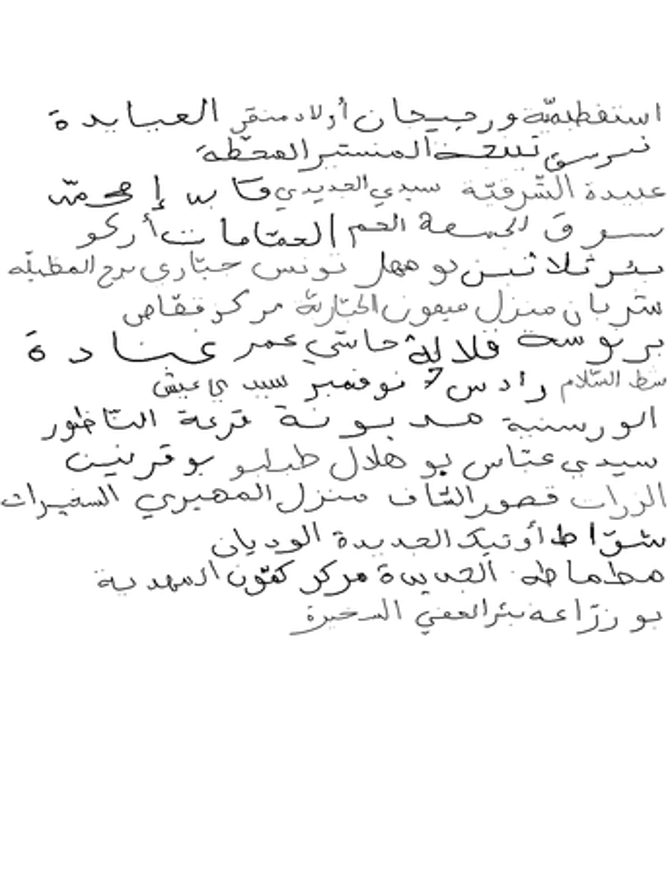 استفطيميّة ورجيحان أولاد منقر العبايدة
نرسق تلبعت المنستير المحطّة
عبيدة الشّرفيّة سيدي الجديدي قابس إمحمّد
سوق الجمعة الحم الحمّامات أركو
بئر ثلاثين بو مهل تونس حبّاري برج المظيلّه
ستربان منزل ميمون الخبّارية مركز فقّاص
بربوسة قلالة حاسّي عمر عبادة
شط السّلام رادس 7 نوفمبر سيدي عيش
الورسنية مديونة قرعة النّاظور
سيدي عبّاس بو هلال طبلبو بوقرنين
الزرات قصور السّاف منزل المهيري السغيرات
شوّاط أوتيك الجديدة الوديان
مطماطه الجديدة مركز كمّون المهدية
بو زرّاعة بئر الحفي السخيرة